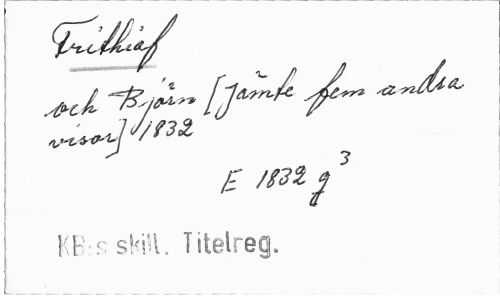 Frithiof
och Björn [jämte fem andra
visor] 1832
E 1832 g 3
KB:s skill. Titelreg.